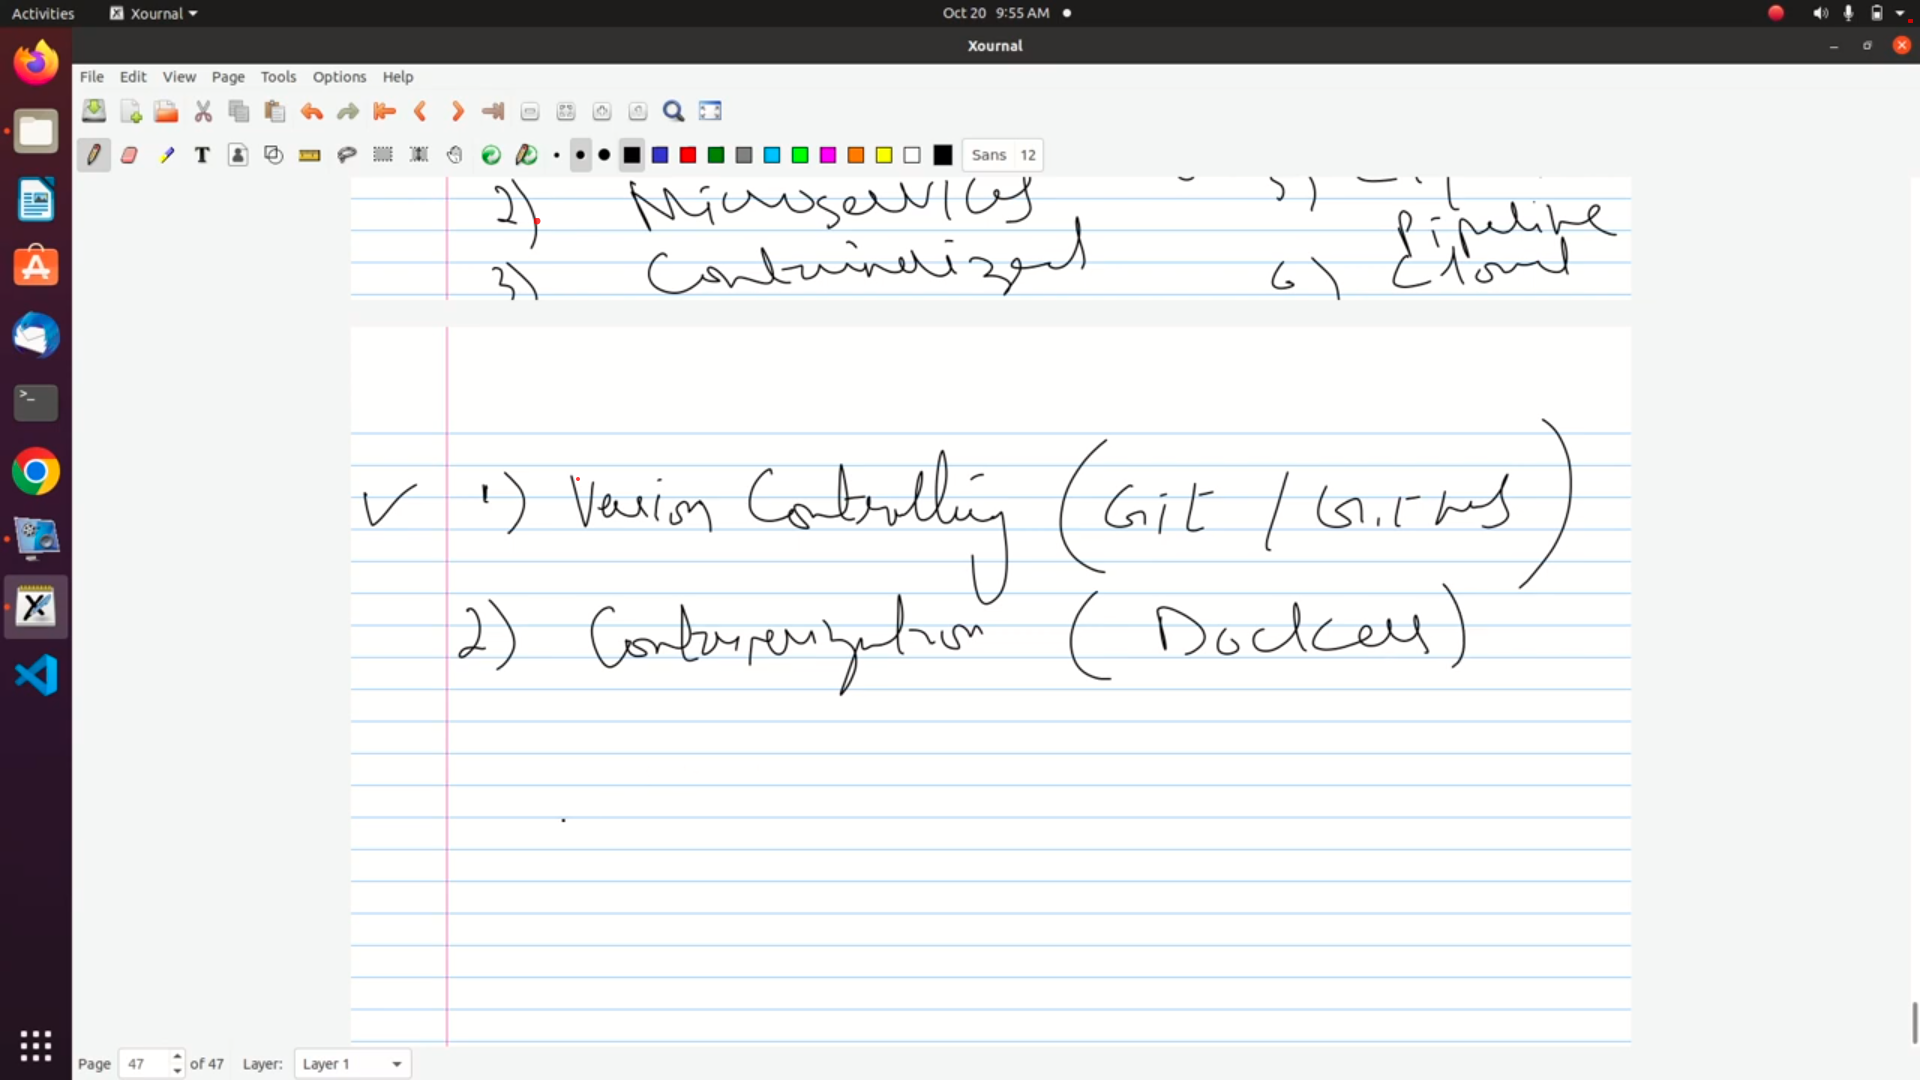 Activities Xournal Oct 20 9:55 AM
Xournal
File Edit View Page Tools Options Help
Sans 12
2) Microservices
Pipeline
3) Containerized 6) Cloud
1) Version Controlling (Git / GitHub)
2) Containerization (Docker)
Page 47 of 47 Layer: Layer 1